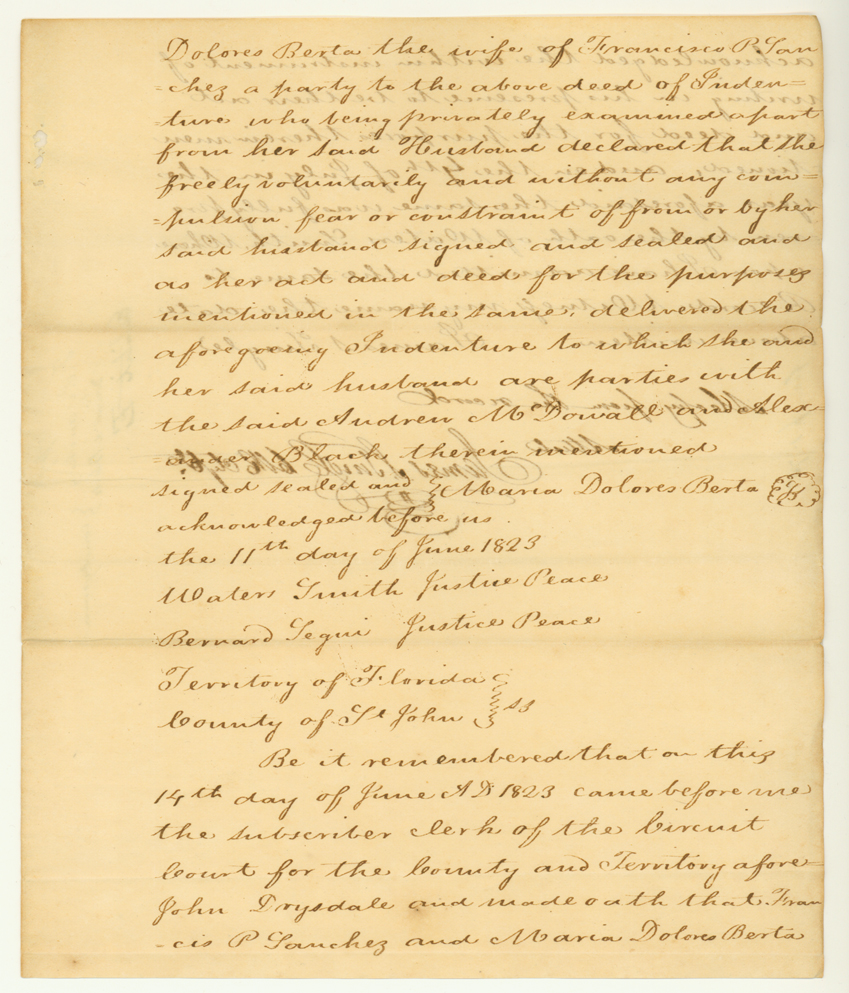 Dolores Berta the wife of Francisco P. San
=chez a party to the above deed of Inden=
=ture who being privately examined apart
from her said Husband declared that she
freely voluntarily and without any com=
=pulsion fear or constraint of from or by her
said husband signed and sealed and
as her act and deed for the purposes
mentioned in the same, delivered the
aforegoeing Indenture to which she and
her said husband are parties with
the said Andrew McDowall and Alex=
=ander Black therein mentioned
signed sealed and Maria Dolores Berta
acknowledged before us.
the 11th day of June 1823
Waters Smith Justice Peace
Bernard Segui Justice Peace
Territory of Florida
County of St John ss
Be it remembered that on this
14th day of June AD 1823 came before me
the subscriber clerk of the Circuit
Court for the County and Territory afore=
John Drysdale and made oath that Fran
=cis P Sanchez and Maria Dolores Berta